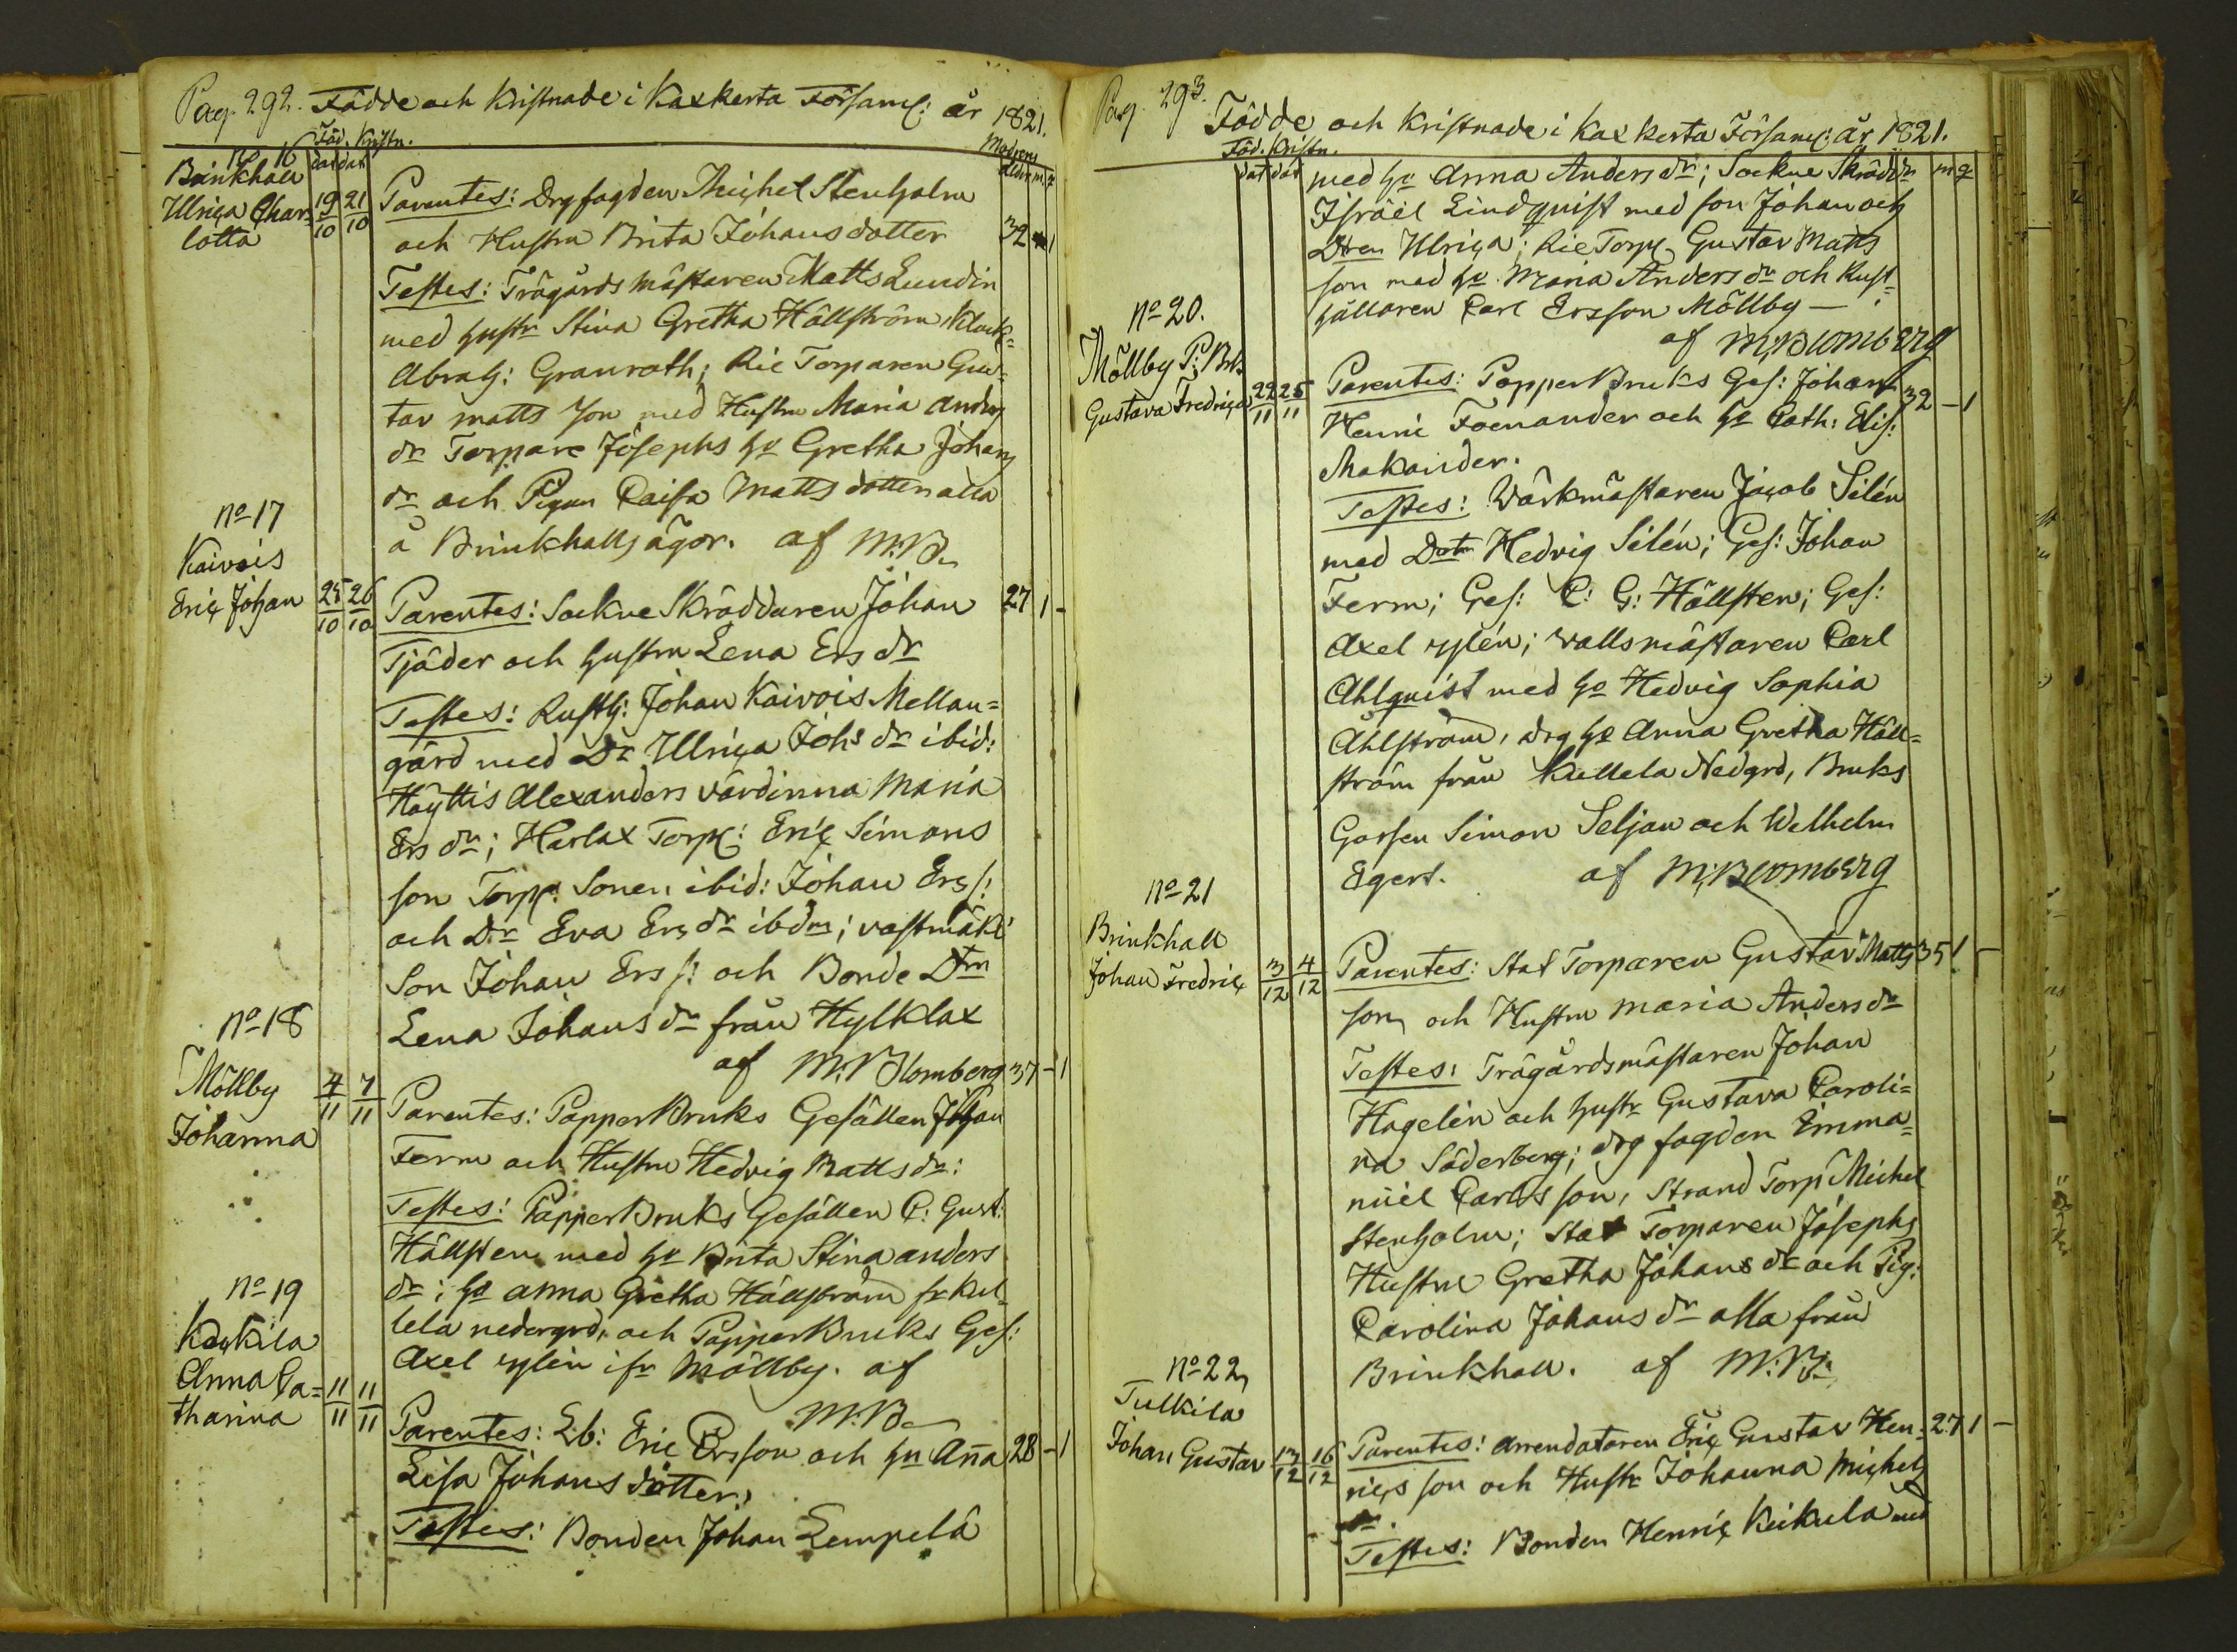 Pag. 292. Födde och Kristnade i Kaxkerta Församl: år 1821.
Föd. Kristn.
Modrens
No 16
dat dat
ålder m. q
Brinkhall
Ulrica Char=
lotta
19/10 21/10
Parentes: Drgfogden Michel Stenholm
och Hustru Brita Johansdotter 32 1
Testes: Trägårds mästaren Matts Lundin
med hustr Stina Gretha Hällström, Klock=
Abrah: Granroth; Rie Torparen Gus=
tav matts son med Hustru Maria Anders
dr Torpare Josephs ho Gretha Johans
dr och Pigan Caisa Matts dotter alla
å Brinkhalls ägor. af M:B
No 17
Kaivois
Eric Johan 25/10 26/10
Parentes: Sockne Skräddaren Johan 27 1 -
Tjäder och hustru Lena Ers dr
Testes: Rusth: Johan Kaivois Mellan=
gård med Dr Ulrica Johs dr ibid:
Höyttis Alexanders värdinna Maria
Ers dr; Harlax Torp: Eric Simons
son Torp: Sonen ibid: Johan Ers s:
och Dr Eva Ers dr ibdm; vastmäki
Son Johan Ers s: och Bonde Dtrn
Lena Johans dr från Hylklax
af M:Blomberg
No 18
Möllby
Johanna
4/11 7/11
37 - 1
Parentes: PapperBruks Gesällen Johan
Ferm och Hustru Hedvig Matts dr:
Testes: PapperBruks Gesällen C: Gust:
Hällsten med ho Brita Stina anders
dr; ho anna Gretha Hällström fr Kul=
lela nedergrd, och PapperBruks Ges:
Axel Rylén ifr Möllby. af
M:B
No 19
Kaxkila
Anna Ca=
tharina
11/11 11/11
Parentes: Lb: Eric Ersson och hu Anna 28 - 1
Lisa Johans dotter.
Testes: Bonden Johan Lempelä
Pag. 293.
Födde och Kristnade i Kaxkerta Församl: år 1821.
Föd. Kristn.
dat dat
m q
med ho Anna Anders dr; Sockne Skräddr
Israël Lindquist med son Johan och
Dtren Ulrica; Rie Torp. Gustav Matts
son med ho Maria Anders dr och Rust=
hållaren Carl Ersson Möllby
af M;Blomberg
No 20.
Möllby P: Br.
Gustava Fredrica 22/11 25/11
Parentes: PapperBruks Ges: Johan 32 - 1
Henric Foenander och ho Cath: Elis:
Makander.
Testes: Wärkmästaren Jacob Silén
med Dotrn Hedvig Silén; Ges: Johan
Ferm; Ges: C: G: Hällsten; Ges:
Axel Rylén; vallsmästaren Carl
Ahlquist med ho Hedvig Sophia
Åhlström, drg ho Anna Gretha Häll=
ström från Kullela Nedgrd, Bruks
Gossen Simon Seljan och Welhelm
Egert. af M;Blomberg
No 21
Brinkhall
Johan Fredric 3/12 4/12
Parentes: Stat Torparen Gustav Matts 35 1 -
son, och Hustru Maria Anders dr
Testes: Trägårdsmästaren Johan
Hagelin och hustr Gustava Caroli=
na Söderberg; drg fogden Emma=
nuël Carls son, Strand Torp Michel
Stenholm; Stat Torparen Josephs
Hustru Gretha Johans dr och Pig:
Carolina Johans dr alla från
Brinkhall. af M:B.
No 22
Tulkila
Johan Gustav 13/12 16/12
Parentes: Arrendatoren Eric Gustav Hen= 27 1 -
rics son och Hustr Johanna Michels
dr.
Testes: Bonden Henric Keikula med